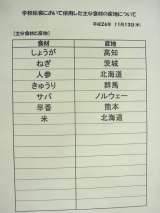 学校給食において使用した主な食材の産地について
平成26年 11月13日(木)
(主な食材の産地)
食材 産地
しょうが 高知
ねぎ 茨城
人参 北海道
きゅうり 群馬
サバ ノルウェー
早香 熊本
米 北海道